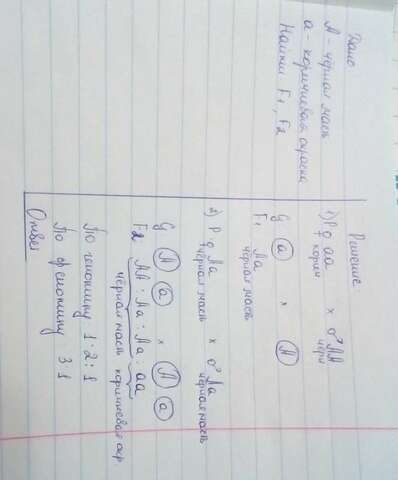 Дано
А - чёрная масть
а - коричневая окраска
Найти F1, F2
Решение:
1) P ♀ аа х ♂ АА
корич чёрн
G а х А
F1 Аа
чёрная масть
2) P ♀ Аа х ♂ Аа
чёрная масть чёрная масть
G А а х А а
F2 АА : Аа : Аа : аа
чёрная масть коричневая окр.
По генотипу 1:2:1
По фенотипу 3 1
Ответ